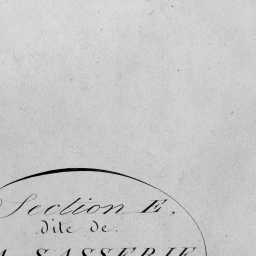 Section E,
dite de
A SASSERIE